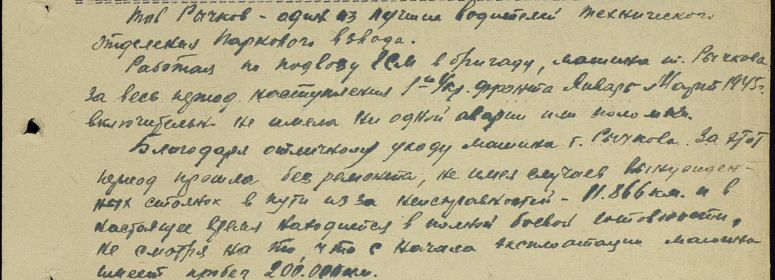 Тов Рычков - один из лучших водителей технического
отделения Паркового взвода.
Работая по подвозу ГСМ в бригаду, машина т. Рычкова
за весь период наступления 1го Укр. фронта Январь Март 1945г.
включительн не имела ни одной аварии или поломки.
Благодаря отличному уходу машина т. Рычкова. За этот
период прошла без ремонта, не имея случаев вынужден-
ных стоянок в пути из за неисправностей - 11.866 км. и в
настоящее время находится в полной боевой готовности,
не смотря на то, что с начала эксплоатации машина
имеет пробег 200.000 км.